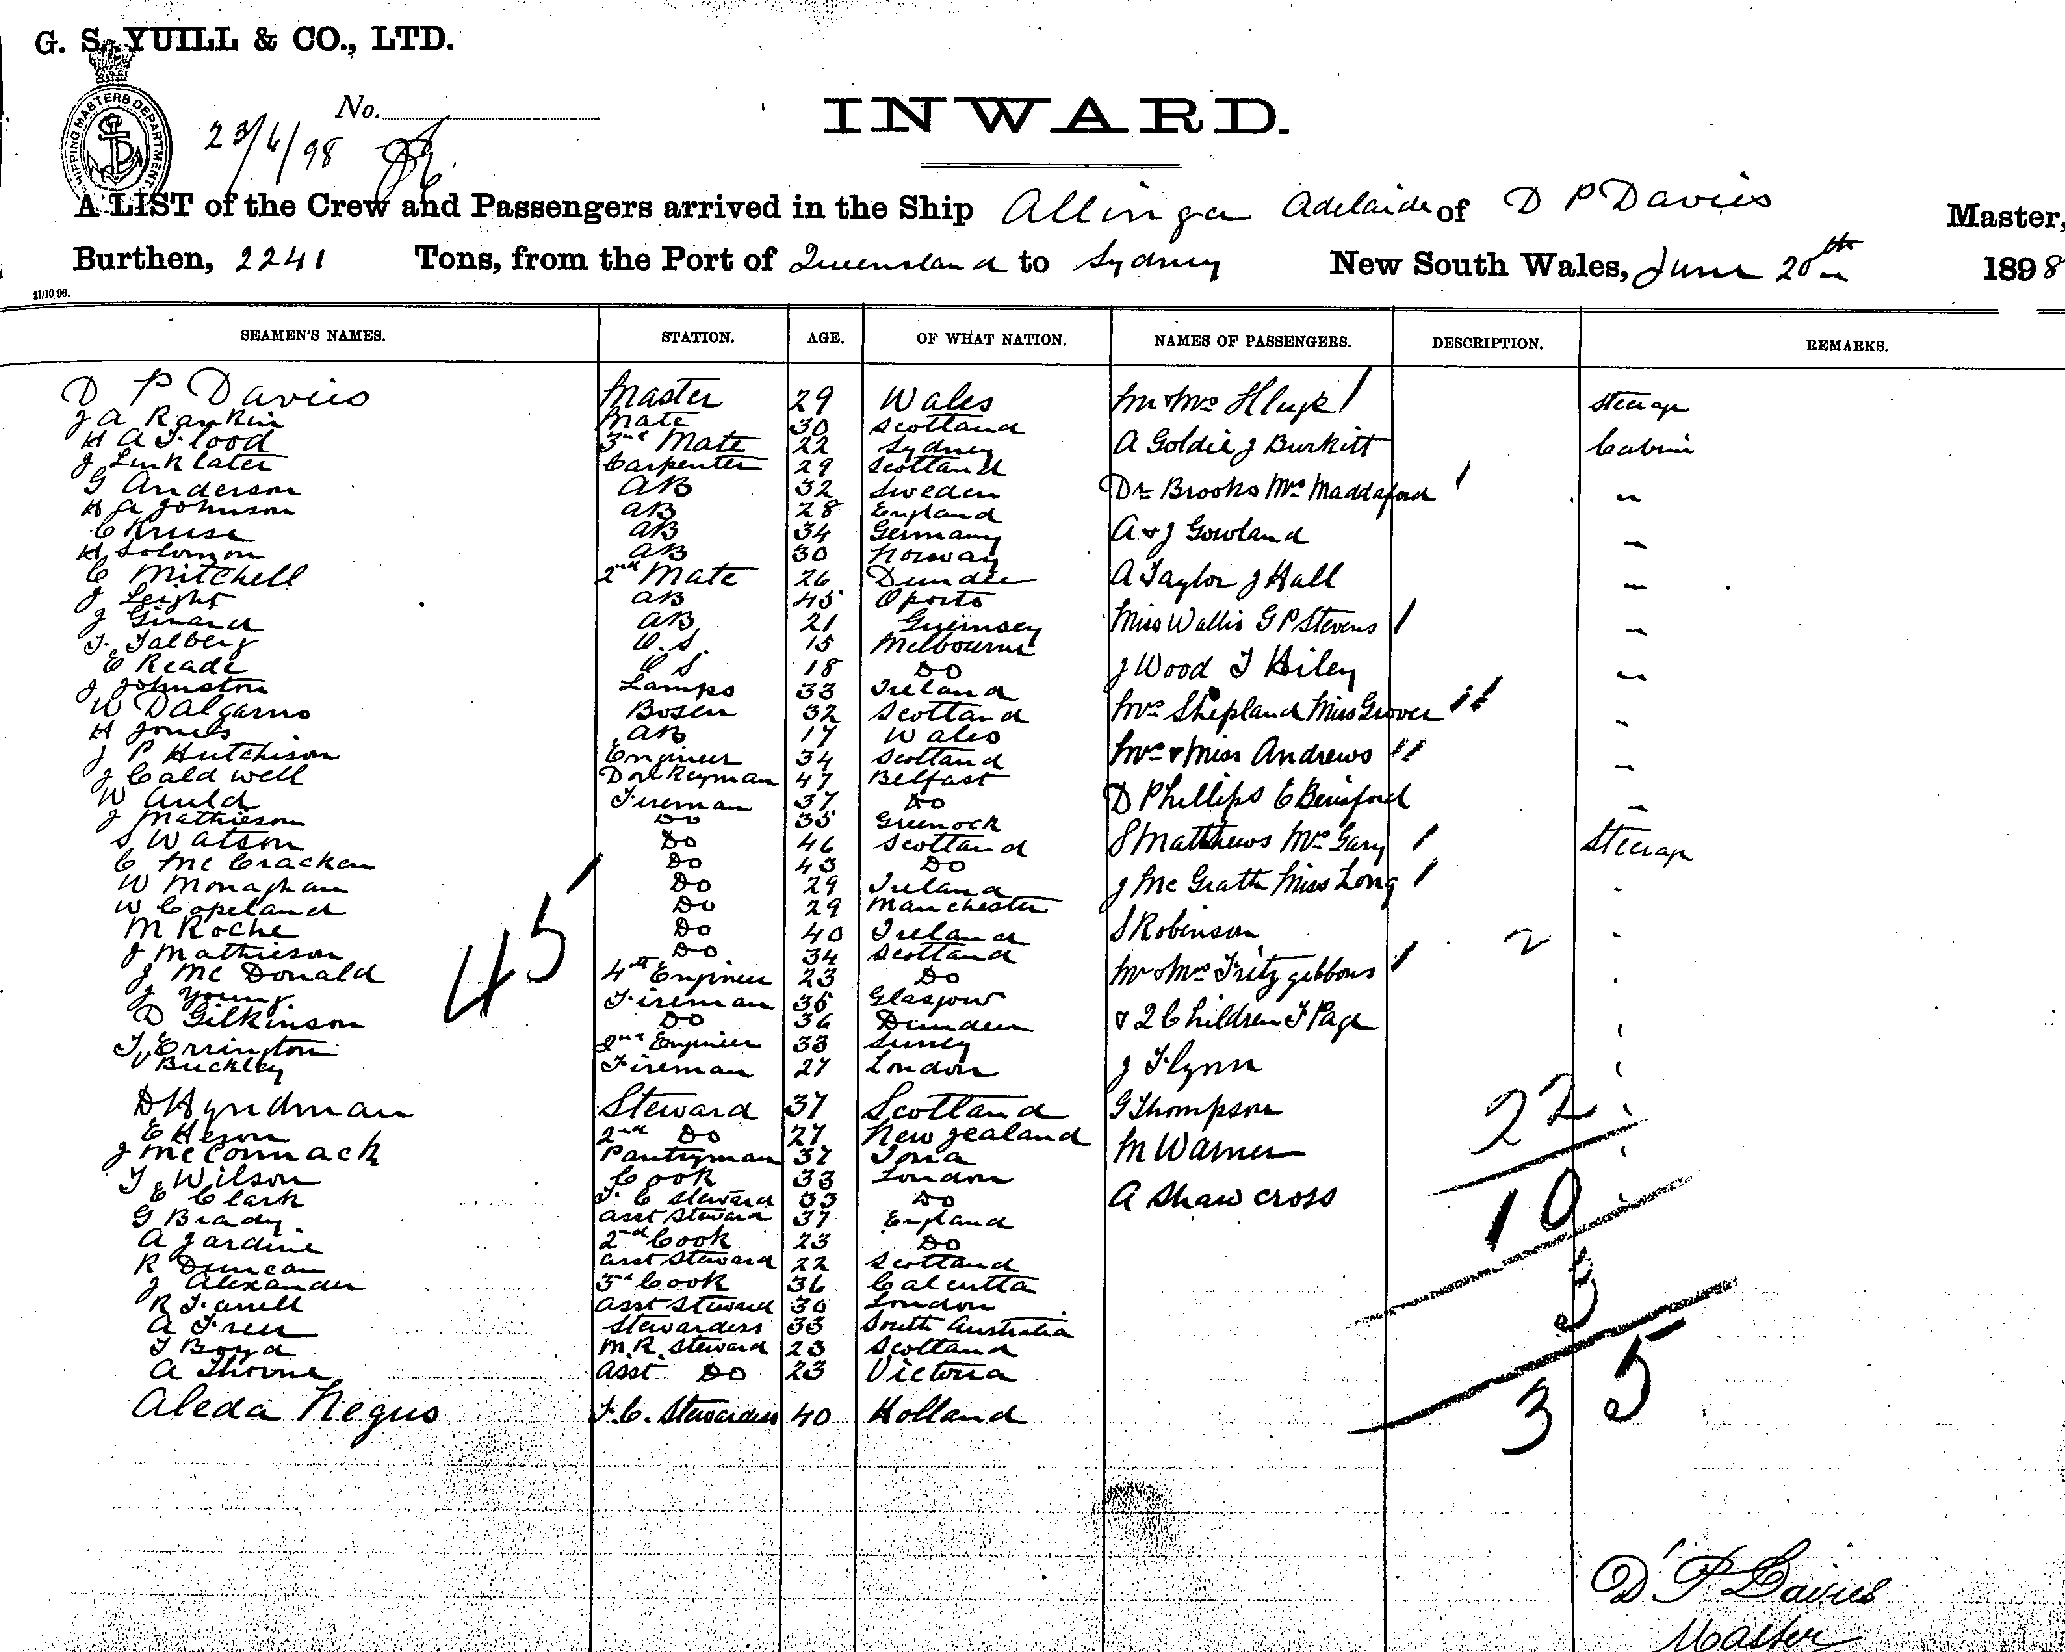 G. S. YUILL & CO., LTD.
SHIPPING MASTERS DEPARTMENT
No.
23/6/98
INWARD.
A LIST of the Crew and Passengers arrived in the Ship Allinga Adelaide of D P Davies Master,
Burthen, 2241 Tons, from the Port of Queensland to Sydney New South Wales, June 20th 1898
21/10 96.
SEAMEN'S NAMES. STATION. AGE. OF WHAT NATION. NAMES OF PASSENGERS. DESCRIPTION. REMARKS.
D P Davies Master 29 Wales Mr & Mrs steerage
J A Rankin Mate 30 Scotland
H A Flood 3rd Mate 22 Sydney A Goldie J Burkitt Cabin
J Linklater Carpenter 29 Scotland
G Anderson AB 32 Sweden Dr Brooks Mrs Maddaford "
H A Johnson AB 28 England
C Kruse AB 34 Germany A & J Gowland "
H Solomon AB 30 Norway
C Mitchell 2nd Mate 26 Dundee A Taylor J Hall "
J Leight AB 45 Oporto
J Girard AB 21 Guernsey Miss Wallis G P Stevens "
T. Talberg O.S. 15 Melbourne
C Reade O S 18 Do J Wood T Hiley "
J Johnston Lamps 33 Ireland
W Dalgarno Bosen 32 Scotland Mrs Shepland Miss Grover "
H Jones AB 17 Wales
J P Hutchison Engineer 34 Scotland Mrs & Miss Andrews "
J Caldwell Donkeyman 47 Belfast
W Auld Fireman 37 Do D Phillips C Berisford "
J Mathieson Do 35 Greenock
S Watson Do 46 Scotland S Matthews Mrs Gary Steerage
C McCracken Do 43 Do
W Monaghan Do 29 Ireland J McGrath Miss Long "
W Copeland Do 29 Manchester
M Roche Do 40 Ireland S Robinson 2 "
J Mathieson Do 34 Scotland
J McDonald 4th Engineer 23 Do Mr & Mrs Fritzgibbons "
45
J Young Fireman 35 Glasgow
D Gilkinson Do 36 Dundee & 2 Children F Page "
T Errington 2nd Engineer 33 Surrey
Buckley Fireman 27 London J Flynn "
D Hyndman Steward 37 Scotland G Thompson 22 "
E Heron 2nd Do 27 New Zealand
J McCormack Pantryman 37 Iona M Warner "
T Wilson Cook 33 London
E Clark F. C Steward 33 Do A Shawcross 10 "
G Brady. Asst Steward 37 England
A Jardine 2nd Cook 23 Do
R Duncan Asst Steward 22 Scotland
J Alexander 3rd Cook 36 Calcutta 3
R Farrell Asst Steward 30 London
A Freer Stewardess 33 South Australia
T Boyd M.R. Steward 23 Scotland
A Throne Asst Do 23 Victoria 35
Aleda Negus F.C. Stewardess 40 Holland
D P Davies
Master